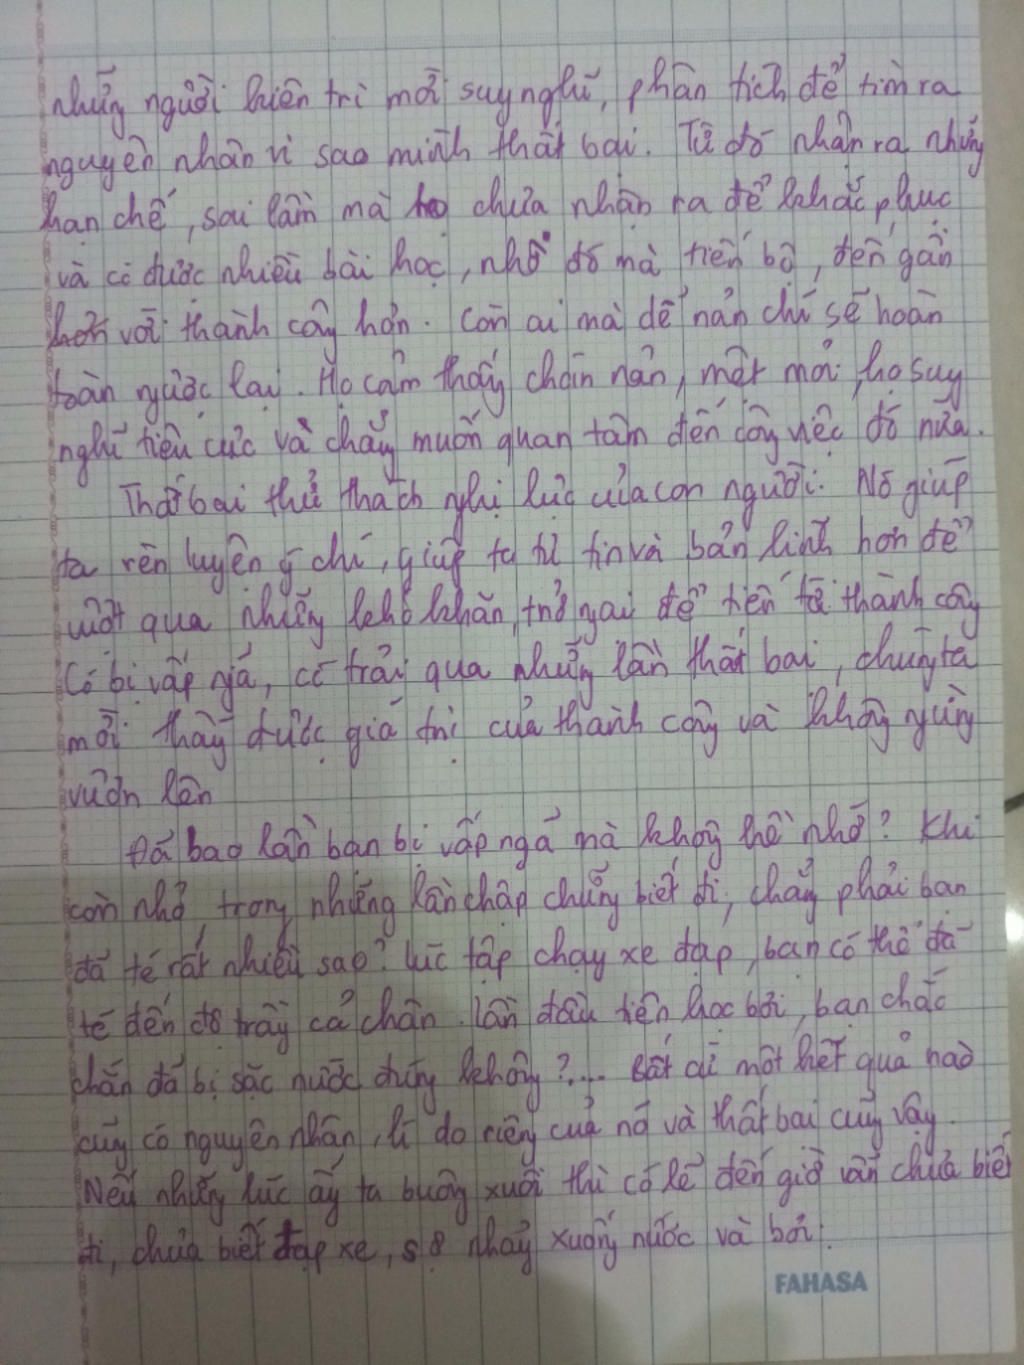 những người kiên trì mới suy nghĩ, phân tích để tìm ra
nguyên nhân vì sao mình thất bại. Từ đó nhận ra những
hạn chế, sai lầm mà họ chưa nhận ra để khắc phục
và có được nhiều bài học, nhờ đó mà tiến bộ, đến gần
hơn với thành công hơn. Còn ai mà dễ nản chí sẽ hoàn
toàn ngược lại. Họ cảm thấy chán nản, mệt mỏi, họ suy
nghĩ tiêu cực và chẳng muốn quan tâm đến công việc đó nữa.
Thất bại thử thách nghị lực của con người. Nó giúp
ta rèn luyện ý chí, giúp ta tự tin và bản lĩnh hơn để
vượt qua những khó khăn, trở ngại để tiến tới thành công
Có bị vấp ngã, có trải qua những lần thất bại, chúng ta
mới thấy được giá trị của thành công và không ngừng
vươn lên
Đã bao lần bạn bị vấp ngã mà không hề nhớ? Khi
còn nhỏ trong những lần chập chững biết đi, chẳng phải bạn
đã té rất nhiều sao? Lúc tập chạy xe đạp, bạn có thể đã
té đến độ trầy cả chân. Lần đầu tiên học bơi, bạn chắc
chắn đã bị sặc nước đúng không?... Bất cứ một kết quả nào
cũng có nguyên nhân, lí do riêng của nó và thất bại cũng vậy.
Nếu những lúc ấy ta buông xuôi thì có lẽ đến giờ vẫn chưa biết
đi, chưa biết đạp xe, sợ nhảy xuống nước và bơi.
FAHASA